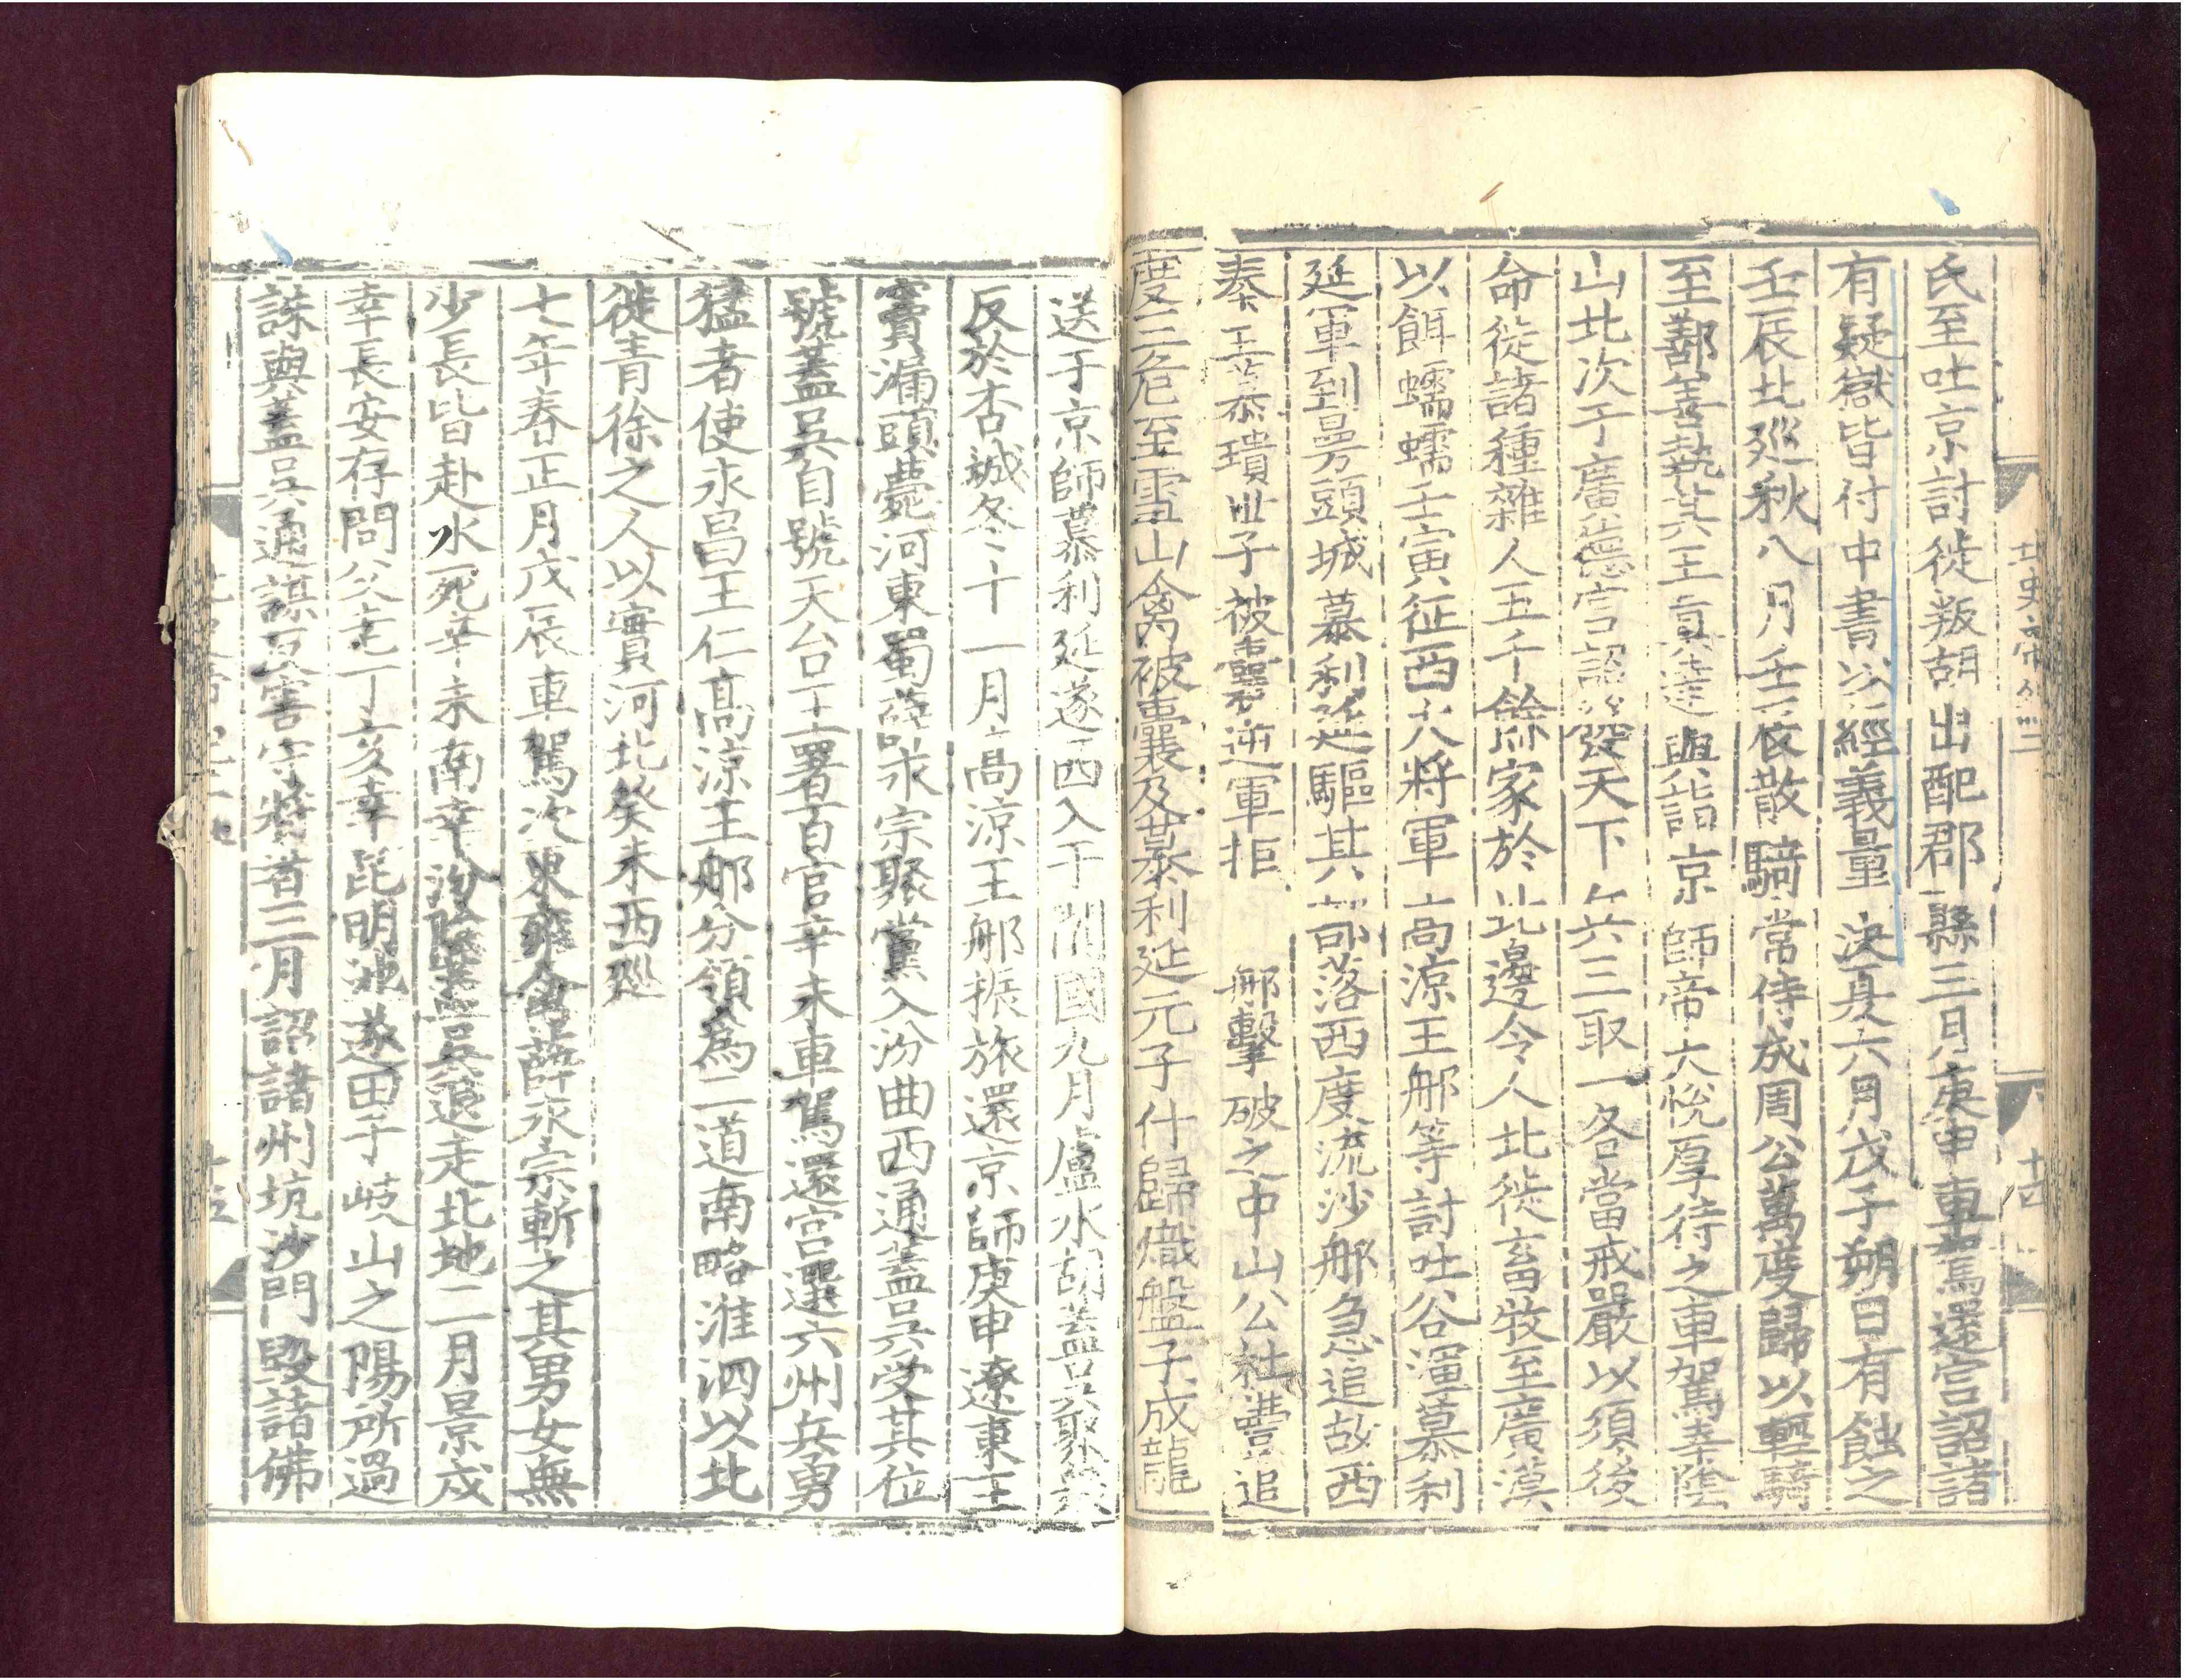 北史帝紀二
十四
氏至吐京討徙叛胡出配郡縣三月庚申車駕還宮詔諸
有疑獄皆付中書以經義量決夏六月戊子朔日有蝕之
壬辰北巡秋八月壬辰散騎常侍成周公萬度歸以輕騎
至鄯善執其王真達與詣京師帝大悅厚待之車駕幸陰
山北次于廣德宮詔發天下兵三取一各當戒嚴以須後
命徙諸種雜人五千餘家於北邊令人北徙畜牧至廣漠
以餌蠕蠕壬寅征西大將軍高涼王那等討吐谷渾慕利
延軍到曼頭城慕利延驅其部落西度流沙那急追故西
秦王慕璝世子被囊逆軍拒那擊破之中山公杜豐追
度三危至雪山禽被囊及慕利延元子什歸熾盤子成龍
送于京師慕利延遂西入于闐國九月盧水胡蓋吳聚眾
反於杏城冬十一月高涼王那振旅還京師庚申遼東王
竇漏頭薨河東蜀薛永宗聚黨入汾曲西通蓋吳受其位
號蓋吳自號天台王署百官辛未車駕還宮選六州兵勇
猛者使永昌王仁高涼王那分領為二道南略淮泗以北
徙青徐之人以實河北癸未西巡
七年春正月戊辰車駕次東雍禽薛永宗斬之其男女無
少長皆赴水死辛未南幸汾陰蓋吳退走北地二月景戌
幸長安存問父老丁亥幸昆明池遂田于岐山之陽所過
誅與蓋吳通謀害守將者三月詔諸州坑沙門毀諸佛